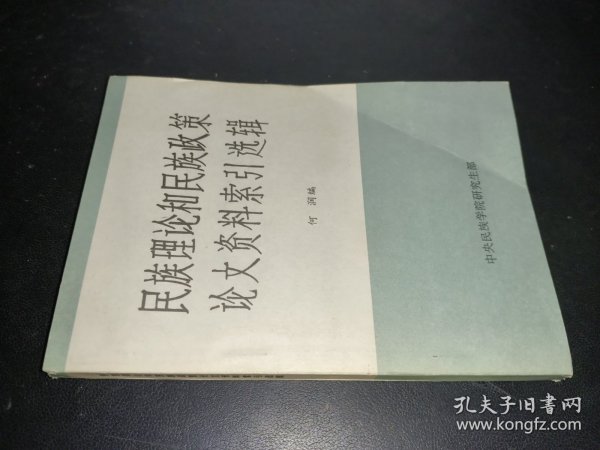 民族理论和民族政策
论文资料索引选辑
何 润编
中央民族学院研究生部
孔夫子旧书网
www.kongfz.com